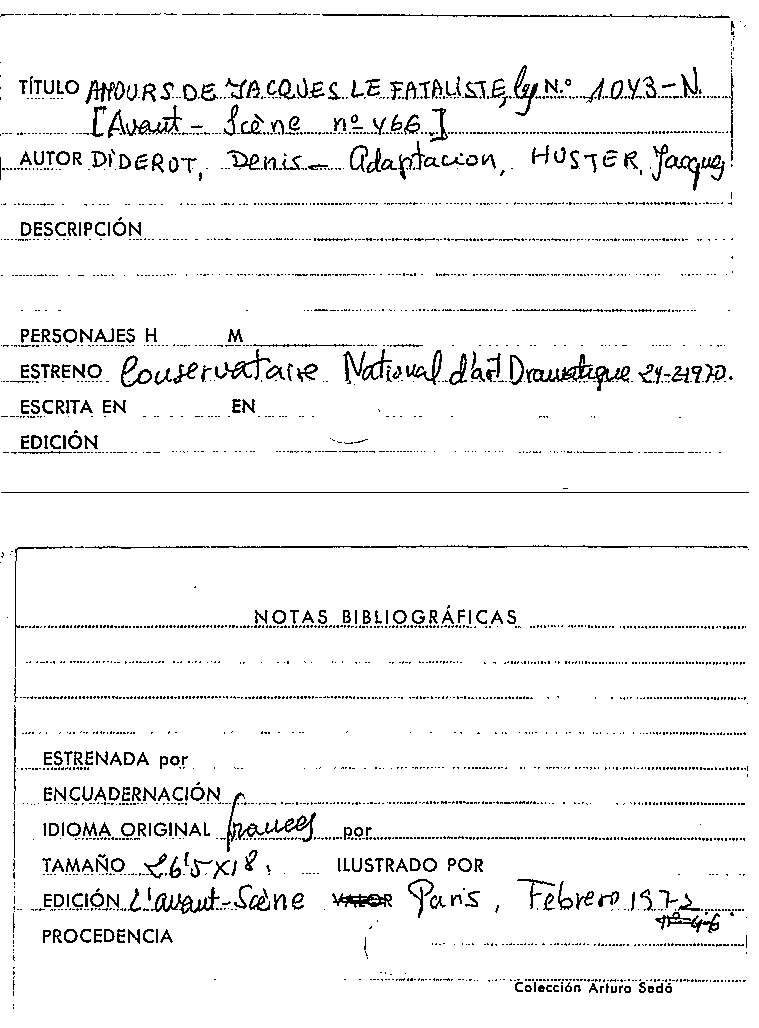 TÍTULO AMOURS DE JACQUES LE FATALISTE, les N.º 1043-N.
[Avant-Scène nº 466]
AUTOR DIDEROT, Denis - Adaptacion, HUSTER, Jacques
DESCRIPCIÓN
PERSONAJES H M
ESTRENO Conservatoire National d'art Dramatique 24-2-1970.
ESCRITA EN EN
EDICIÓN
NOTAS BIBLIOGRÁFICAS
ESTRENADA por
ENCUADERNACIÓN
IDIOMA ORIGINAL frances por
TAMAÑO 26'5X18. ILUSTRADO POR
EDICIÓN L'avant-Scène VALOR Paris, Febrero 1972
PROCEDENCIA
Colección Arturo Sedó